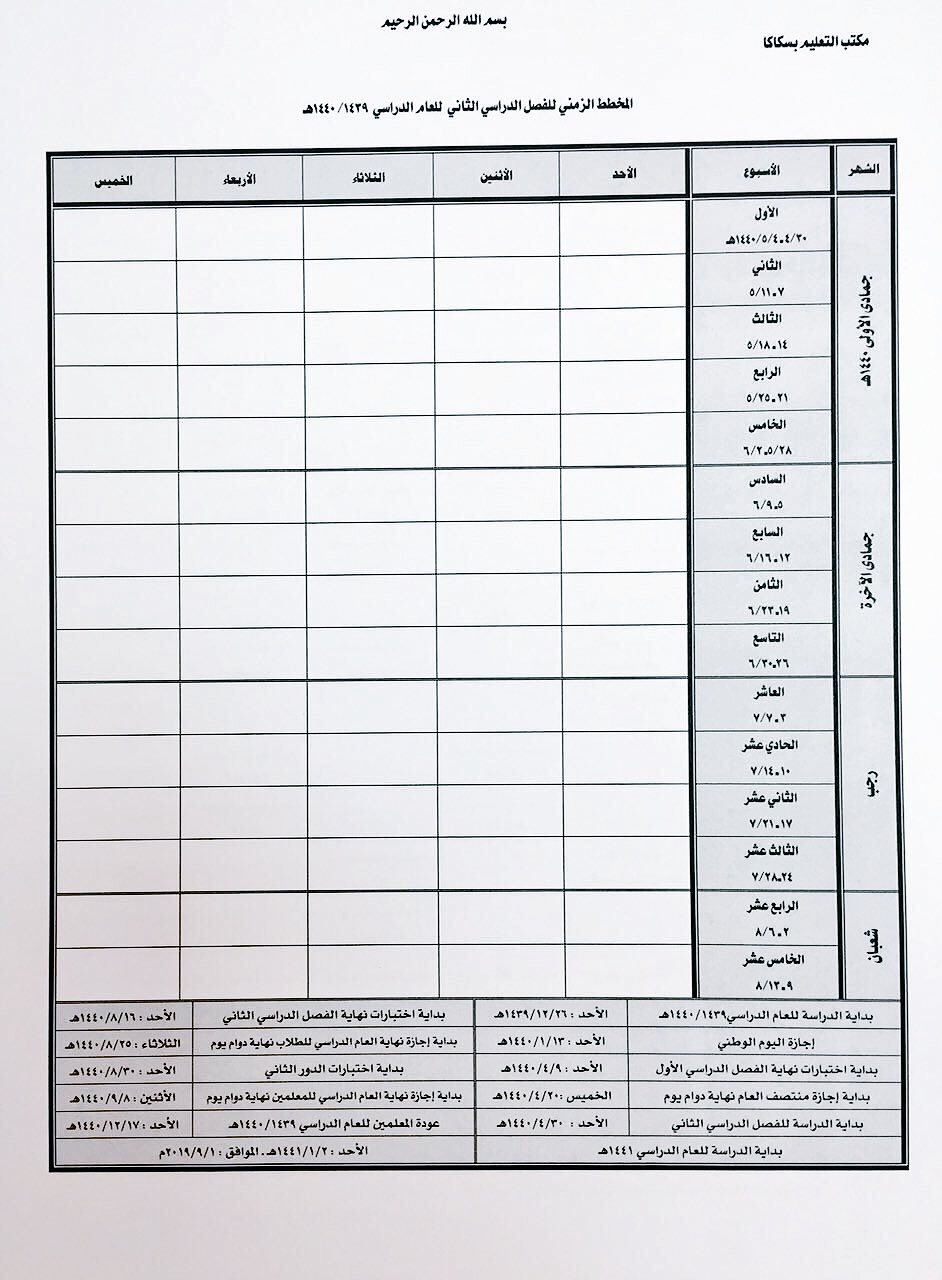 بسم الله الرحمن الرحيم
مكتب التعليم بسكاكا
المخطط الزمني للفصل الدراسي الثاني للعام الدراسي ١٤٤٠/١٤٣٩هـ
الشهر الأسبوع الأحد الأثنين الثلاثاء الأربعاء الخميس
جمادى الأولى ١٤٤٠هـ
الأول
٤/٣٠-١٤٤٠/٥/٤هـ
الثاني
٧-٥/١١
الثالث
١٤-٥/١٨
الرابع
٢١-٥/٢٥
الخامس
٥/٢٨-٦/٢
جمادى الآخرة
السادس
٥-٦/٩
السابع
١٢-٦/١٦
الثامن
١٩-٦/٢٣
التاسع
٢٦-٦/٣٠
رجب
العاشر
٣-٧/٧
الحادي عشر
١٠-٧/١٤
الثاني عشر
١٧-٧/٢١
الثالث عشر
٢٤-٧/٢٨
شعبان
الرابع عشر
٢-٨/٦
الخامس عشر
٩-٨/١٣
بداية الدراسة للعام الدراسي١٤٤٠/١٤٣٩هـ الأحد : ١٤٣٩/١٢/٢٦هـ بداية اختبارات نهاية الفصل الدراسي الثاني الأحد : ١٤٤٠/٨/١٦هـ
إجازة اليوم الوطني الأحد : ١٤٤٠/١/١٣هـ بداية إجازة نهاية العام الدراسي للطلاب نهاية دوام يوم الثلاثاء : ١٤٤٠/٨/٢٥هـ
بداية اختبارات نهاية الفصل الدراسي الأول الأحد : ١٤٤٠/٤/٩هـ بداية اختبارات الدور الثاني الأحد : ١٤٤٠/٨/٣٠هـ
بداية إجازة منتصف العام نهاية دوام يوم الخميس :١٤٤٠/٤/٢٠هـ بداية إجازة نهاية العام الدراسي للمعلمين نهاية دوام يوم الأثنين : ١٤٤٠/٩/٨هـ
بداية الدراسة للفصل الدراسي الثاني الأحد : ١٤٤٠/٤/٣٠هـ عودة المعلمين للعام الدراسي ١٤٤٠/١٤٣٩هـ الأحد : ١٤٤٠/١٢/١٧هـ
بداية الدراسة للعام الدراسي ١٤٤١هـ الأحد : ١٤٤١/١/٢هـ - الموافق : ٢٠١٩/٩/١م